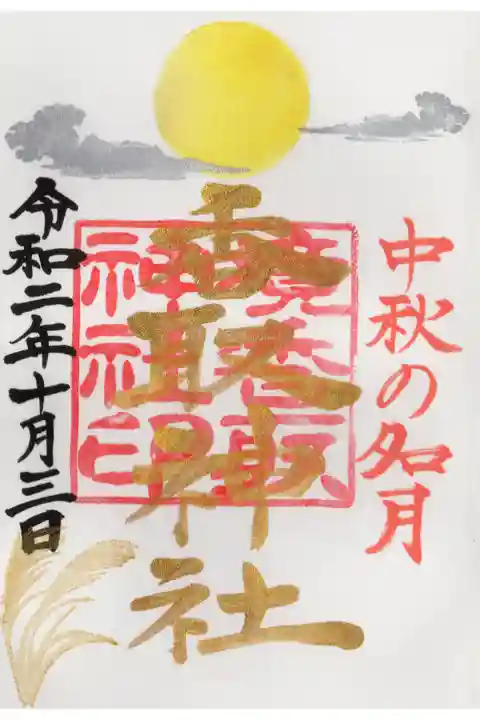 中秋の名月
香取神社
香取
神社印
令和二年十月三日